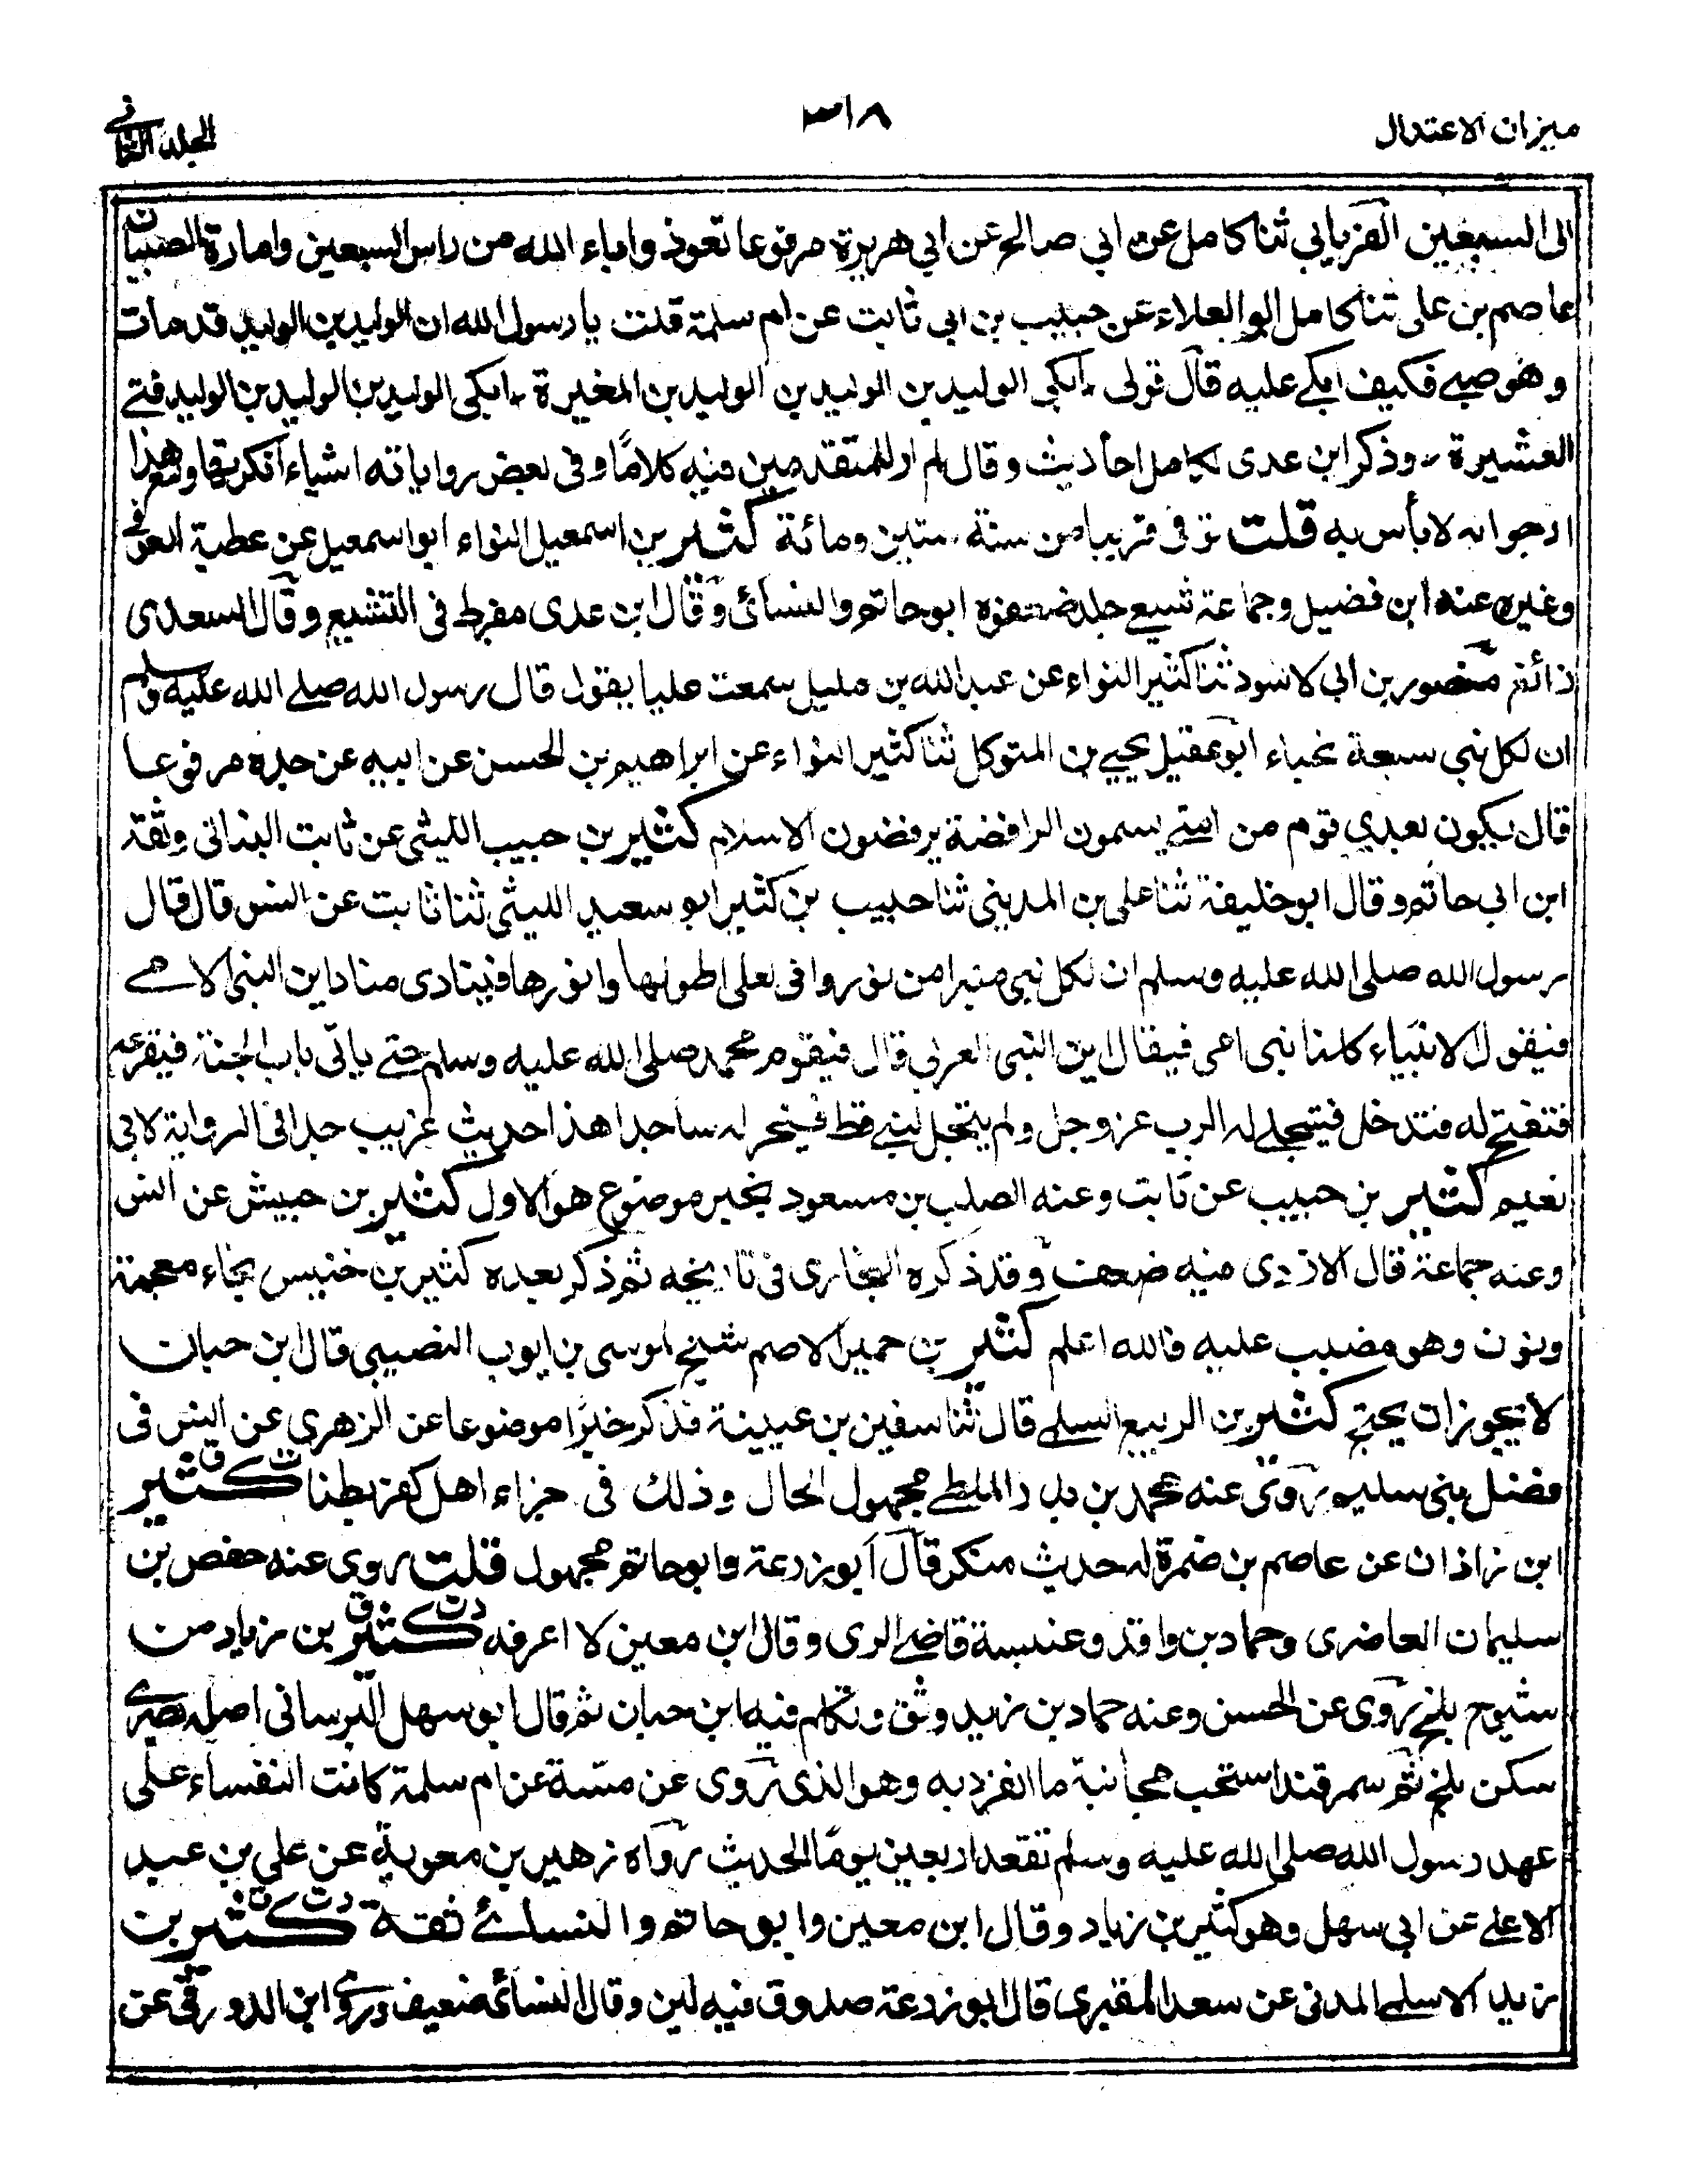 ميزان الاعتدال
٣١٨
الجلد الثانى
الى السبعين الفريابي ثنا كامل عن ابي صالح عن ابي هريرة مرفوعا تعوذ واباء الله من راس السبعين وامارة الصبيان
عاصم بن على ثنا كامل ابو العلاء عن حبيب بن ابى ثابت عن ام سلمة قلت يا رسول الله ان الوليد بن الوليد قد مات
وهو صبے فكيف ابكے عليه قال قولى ـ ابكى الوليد بن الوليد بن الوليد بن المغيرة ـ ابكى الوليد بن الوليد بن الوليد فتے
العشيرة ـ وذكر ابن عدى لكامل احاديث وقال لم ار للمتقدمين فيه كلامًا وفى بعض رواياته اشياء انكرتها ومع هذا
ارجوانه لا بأس به قلت توفى قريبا من سنة ستين ومائة كثير بن اسمعيل النواء ابو اسمعيل عن عطية العوفى
وغيره عنه ابن فضيل وجماعة شيعے جلد ضعفوه ابو حاتم والنسائى وقال ابن عدى مفرط فى التشيع وقال السعدى
زائغ منصور بن ابى لاسود ثنا كثير النواء عن عبد الله بن مليل سمعت عليا يقول قال رسول الله صلے الله عليه وسلم
ان لكل نبى سبعة نجباء ابو عقيل يحيے بن المتوكل ثنا كثير النواء عن ابراهيم بن الحسن عن ابيه عن جده مرفوعا
قال يكون بعدي قوم من امتے يسمون الرافضة يرفضون الاسلام كثير بن حبيب الليثى عن ثابت البنانى وثقه
ابن ابى حاتم وقال ابو خليفة ثنا على بن المدينى ثنا حبيب بن كثير ابو سعيد الليثى ثنا ثابت عن انس قال قال
رسول الله صلى الله عليه وسلم ان لكل نبى منبرا من نور وانى لعلى اطولها وانورها فينادى منادا ين النبى الامے
فيقول الانبياء كلنا نبى امى فيقال اين النبى العربى قال فيقوم محمد صلى الله عليه وسلم حتے ياتى باب الجنة فيقرعه
فتفتح له فتدخل فيتجلے له الرب عز وجل ولم يتجل لنبے قط فيخر له ساجدا هذا حديث غريب جدا فى الرواية لابى
نعيم كثير بن حبيب عن ثابت وعنه الصلب بن مسعود بخبر موضوع هو الاول كثير بن حبيش عن انس
وعنه جماعة قال الازدى فيه ضعف وقد ذكره البخارى فى تاريخه ثم ذكر بعده كثير بن خنيس بخاء معجمة
ونون وهو مضبب عليه فالله اعلم كثير بن حمير الاصم شيخ لموسى بن ايوب النصيبى قال ابن حبان
لا يجوز ان يحتج كثير بن الربيع السلمے قال ثنا سفين بن عيينة فذكر خبرًا موضوعا عن الزهري عن انس فى
فضل بنى سليم روى عنه محمد بن بدر الملطے مجهول الحال وذلك فى جزاء اهل كفر بطنا ت ے ق كثير
ابن زاذان عن عاصم بن ضمرة له حديث منكر قال ابو زرعة وابو حاتم مجهول قلت روى عنه حفص بن
سليمان الغاضرى وحماد بن واقد وعنبسة قاضے الرى وقال ابن معين لا اعرفه د ت ق كثير بن زياد من
شيوح بلخ روى عن الحسن وعنه حماد بن زيد وثق وتكلم فيه ابن حبان ثم قال ابو سهل البرسانى اصله بصرے
سكن بلخ ثم سمرقند استحب مجانبة ما انفرد به وهو الذى روى عن مسة عن ام سلمة كانت النفساء على
عهد رسول الله صلى الله عليه وسلم تقعد اربعين يومًا الحديث رواه زهير بن معوية عن علي بن عبد
الاعلے عن ابى سهل وهو كثير بن زياد وقال ابن معين وابو حاتم والنسائے ثقة د ت ق كثير بن
زيد الاسلمے المدنى عن سعد المقبري قال ابو زرعة صدوق فيه لين وقال النسائى ضعيف وروى ابن الدورقى عن